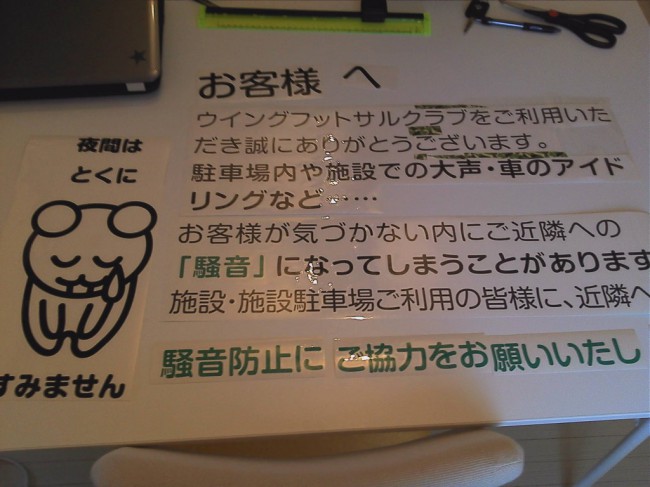 お客様 へ
ウイングフットサルクラブをご利用いた
だき誠にありがとうございます。
駐車場内や施設での大声・車のアイド
リングなど……
お客様が気づかない内にご近隣への
「騒音」になってしまうことがあります
施設・施設駐車場ご利用の皆様に、近隣へ
騒音防止に ご協力をお願いいたし
夜間は
とくに
すみません